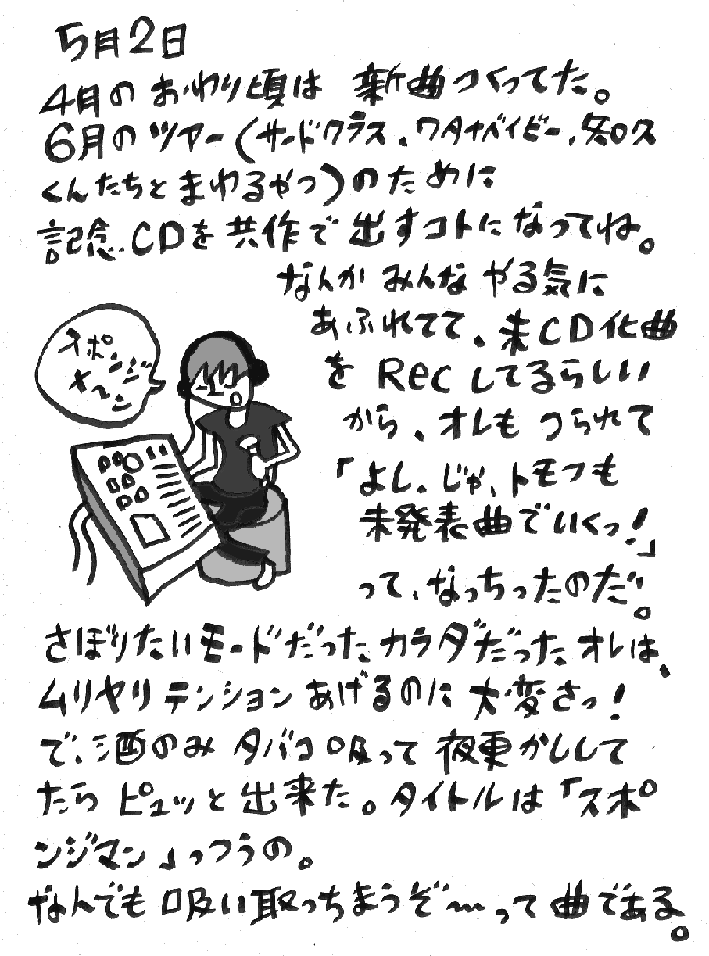 5月2日
4月のおわり頃は 新曲つくってた。
6月のツアー(サードクラス、ワタナベイビー、知久
くんたちとまわるやつ)のために
記念CDを共作で出すコトになってね。
なんかみんなやる気に
あふれてて、未CD化曲
を Rec してるらしい
から、オレもつられて
「よし、じゃ、トモフも
未発表曲でいくっ!」
って、なっちったのだ。
スポ
ンジ
メ〜ン
さぼりたいモードだったカラダだったオレは、
ムリヤリテンションあげるのに大変さっ!
で、酒のみタバコ吸って夜更かしして
たらピュッと出来た。タイトルは「スポ
ンジマン」っつうの。
なんでも吸い取っちまうぞ〜って曲である。